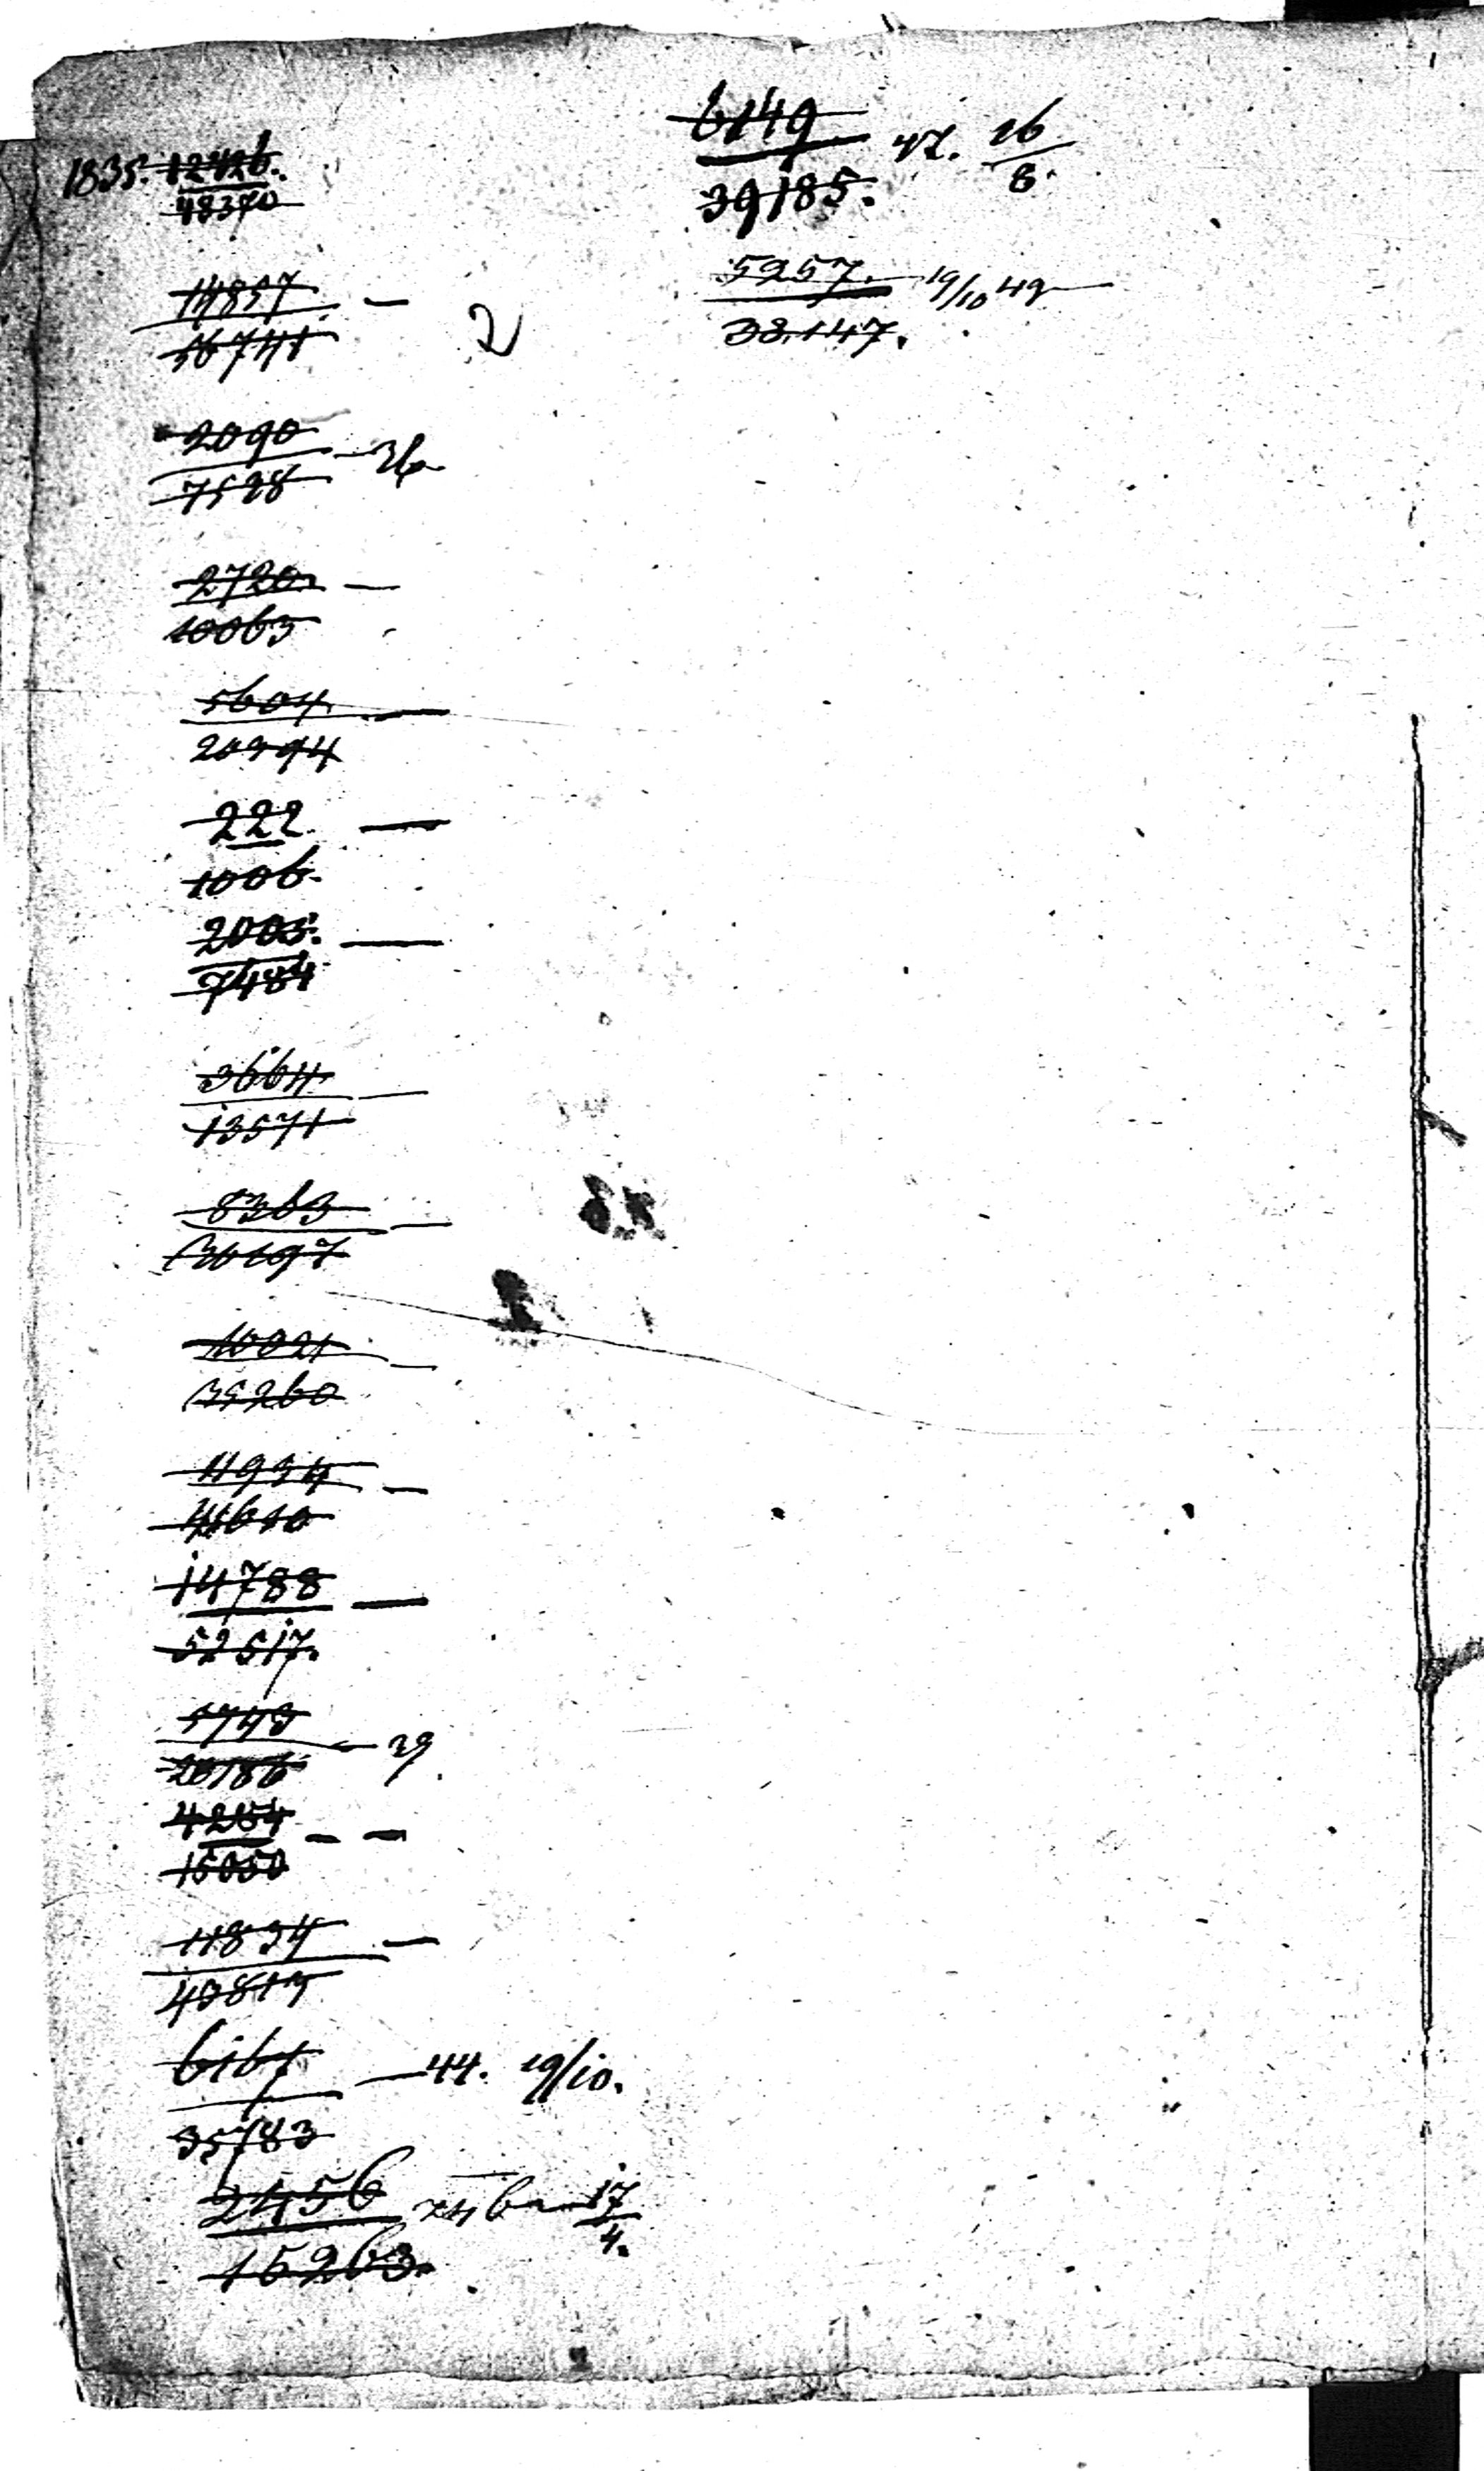 1835. 12426.
48370
14857. —
56741
2
2090 — 36
7528
2720. —
10063
5604. —
20394
222. —
1006.
2005. —
7484
3664. —
13571
8363 —
30197
10021 —
35260
11934 —
41610
14788 —
52517.
5743 — 39.
20186
4254 — —
15050
11834 —
40813
6167 — 44. 19/10.
35783
2456 17/4.
15263.
6149 47. 26/6.
39185.
5257. 19/10 49
38.147.